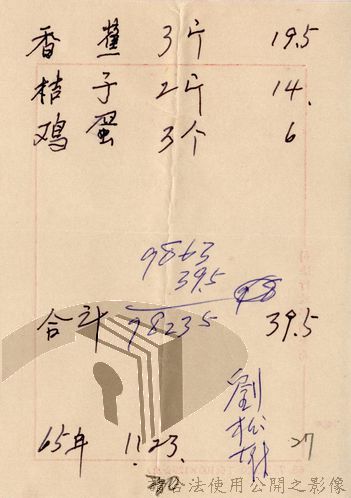 香蕉 3斤 19.5
桔子 2斤 14.
鸡蛋 3个 6
9863
39.5
98
合计 98235 39.5
劉松
65年 11.23. 27
合法使用公開之影像